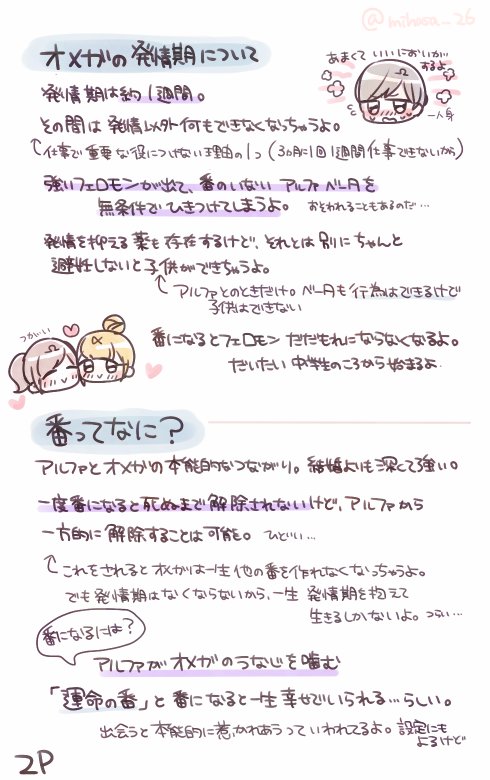 @mihosa_26
オメガの発情期について
あまくていいにおいが
するよ
一人身
発情期は約1週間。
その間は発情以外何もできなくなっちゃうよ。
仕事で重要な役につけない理由の1つ(3ヵ月に1回1週間仕事できないから)
強いフェロモンが出て、番のいないアルファベータを
無条件でひきつけてしまうよ。おそわれることもあるのだ…
発情を抑える薬も存在するけど、それとは別にちゃんと
避妊しないと子供ができちゃうよ。
アルファとのときだけ。ベータも行為はできるけど
子供はできない
つがい
番になるとフェロモンだだもれにならなくなるよ。
だいたい中学生のころから始まるよ
番ってなに?
アルファとオメガの本能的なつながり。結婚よりも深くて強い。
一度番になると死ぬまで解除されないけど、アルファから
一方的に解除することは可能。ひどい…
これをされるとオメガは一生他の番を作れなくなっちゃうよ。
でも発情期はなくならないから、一生発情期を抱えて
生きるしかないよ。つらい…
番になるには?
アルファがオメガのうなじを噛む
「運命の番」と番になると一生幸せでいられる…らしい。
出会うと本能的に惹かれあうっていわれてるよ。設定にも
よるけど
2P